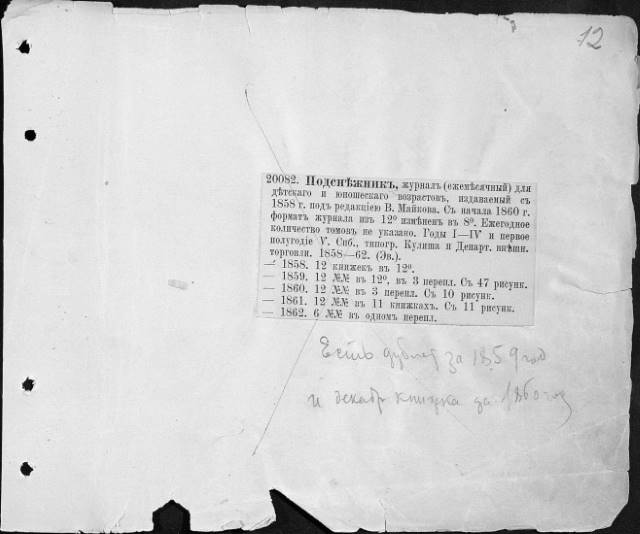 12
20082. Подснѣжникъ, журналъ (ежемѣсячный) для
дѣтскаго и юношескаго возрастовъ, издаваемый съ
1858 г. подъ редакціею В. Майкова. Съ начала 1860 г.
форматъ журнала изъ 12⁰ измѣненъ въ 8⁰. Ежегодное
количество томовъ не указано. Годы I—IV и первое
полугодіе V. Спб., типогр. Кулиша и Департ. внѣшн.
торговли. 1858—62. (Эв.).
— 1858. 12 книжекъ въ 12⁰.
— 1859. 12 №№ въ 12⁰, въ 3 перепл. Съ 47 рисунк.
— 1860. 12 №№ въ 3 перепл. Съ 10 рисунк.
— 1861. 12 №№ въ 11 книжкахъ. Съ 11 рисунк.
— 1862. 6 №№ въ одномъ перепл.
Есть дублет за 1859 год
и декабр книжка за 1860 год